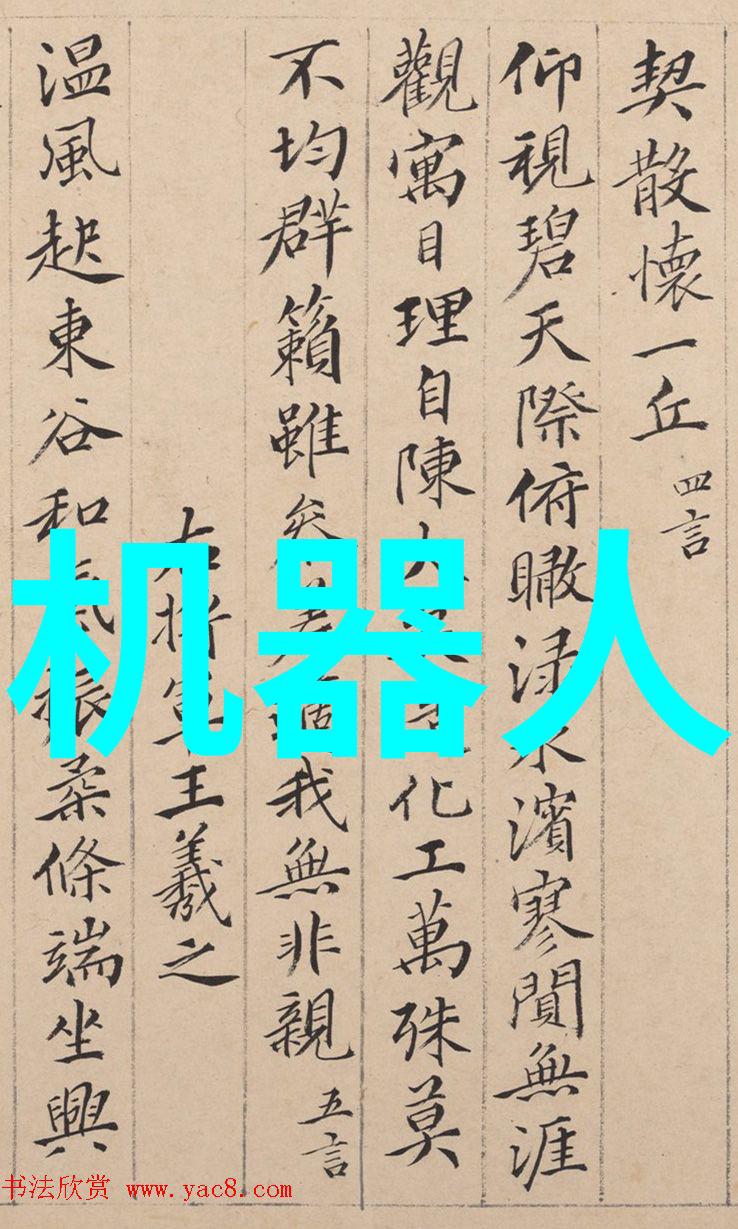 契散懷一丘 四言
仰視碧天際俯瞰淥水濱寥閴無涯
觀寓目理自陳大矣造化工萬殊莫
不均群籟雖參差適我無非親 五言
右將軍王羲之
溫風起東谷和氣振柔條端坐興
机器人
书法欣赏 www.yac8.com